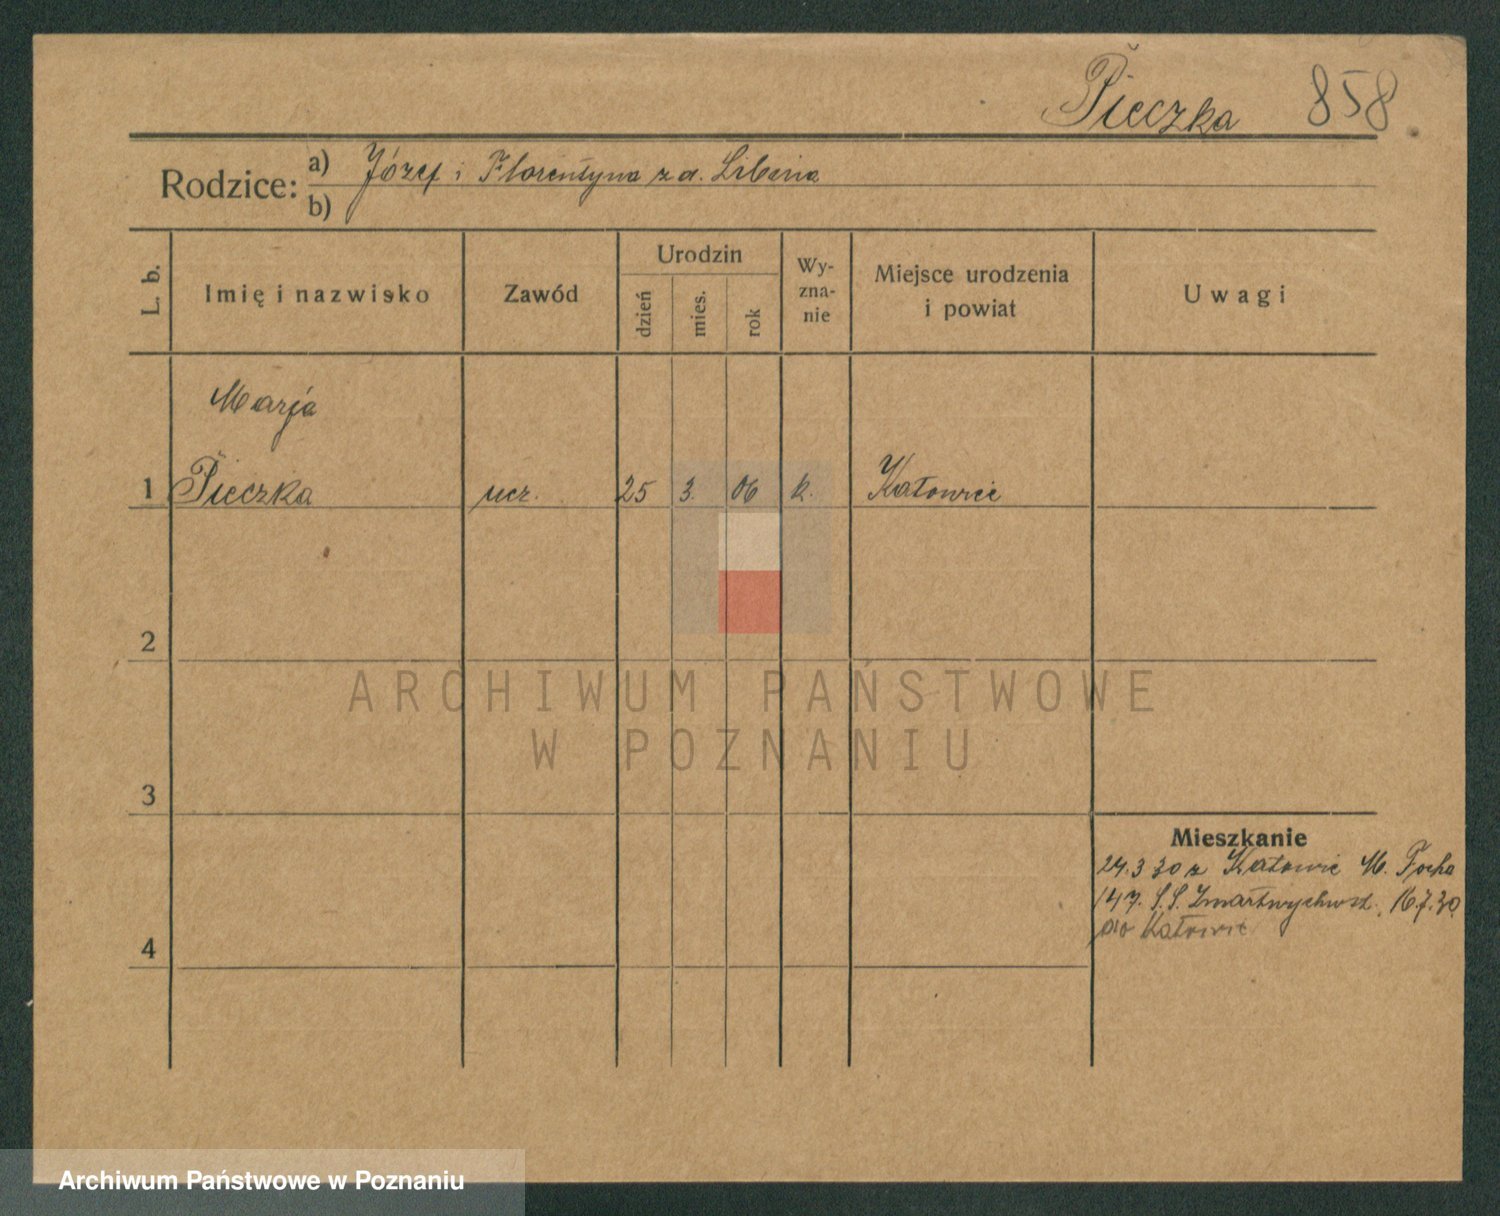 Pieczka 858
Rodzice: a) Józef i Florentyna z d. Libera
b)
L. b. Imię i nazwisko Zawód Urodzin dzień mies. rok Wy-zna-nie Miejsce urodzenia i powiat Uwagi
Marja
1 Pieczka ucz. 25 3. 06 k. Katowice
2
ARCHIWUM PAŃSTWOWE
W POZNANIU
3
Mieszkanie
24.3.30 z Katowic M. Focha
147. S.S. Zmartwychwst. 16.7.30
do Katowic
4
Archiwum Państwowe w Poznaniu